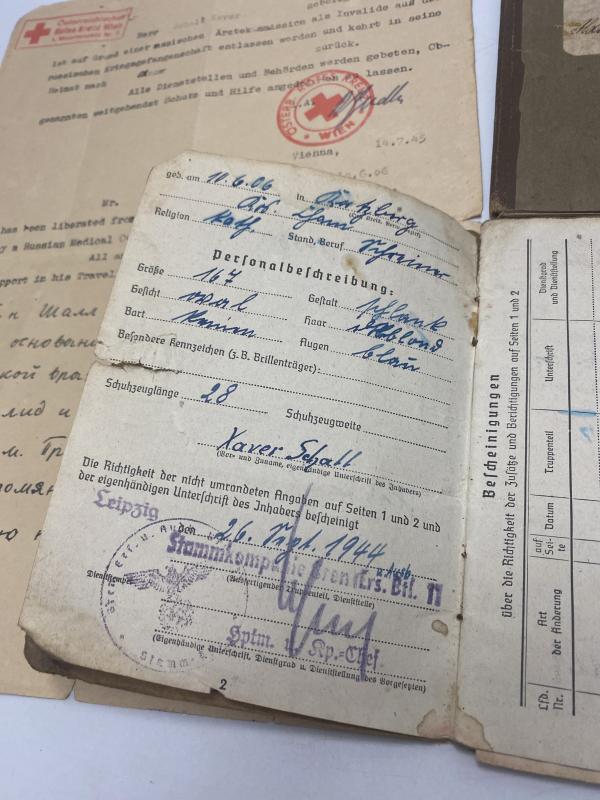 Österreichisches
Rotes Kreuz Wien
Herr Schall Xaver gebore
ist auf Grund einer russischen Ärztekommission als Invalide aus der
russischen Kriegsgefangenschaft entlassen worden und kehrt in seine
Heimat nach zurück.
Alle Dienststellen und Behörden werden gebeten, Ob-
genannten weitgehendst Schutz und Hilfe angedeihen lassen.
ÖSTERR. ROTES KREUZ
WIEN
14.7.45
Vienna,
.6.06
Mr.
has been liberated from
by a Russian Medical Co
All a
pport in his Travel
Шалл
основани
кой вра
лид и
м. Гр
geb. am 10.6.06 in
Religion kath. Stand, Beruf Schreiner
Personalbeschreibung:
Größe 167 Gestalt schlank
Gesicht oval Haar dklblond
Bart keinen Augen blau
Besondere Kennzeichen (z.B. Brillenträger):
Schuhzeuglänge 28 Schuhzeugweite
Xaver Schall
(Vor- und Zuname, eigenhändige Unterschrift des Inhabers)
Die Richtigkeit der nicht umrandeten Angaben auf Seiten 1 und 2 und
der eigenhändigen Unterschrift des Inhabers bescheinigt
Leipzig den 26. Sept. 1944
Stammkompanie Gren. Ers. u. Ausb. Btl. 11
(Ausfertigender Truppenteil, Dienststelle)
Dienststempel
Hptm. u. Kp.-Chef
(Eigenhändige Unterschrift, Dienstgrad u. Dienststellung des Vorgesetzten)
2
Bescheinigungen
über die Richtigkeit der Zusätze und Berichtigungen auf Seiten 1 und 2
Lfd. Nr.
Art der Änderung
auf Sei- te
Datum
Truppenteil
Unterschrift
Dienstgrad und Dienststellung